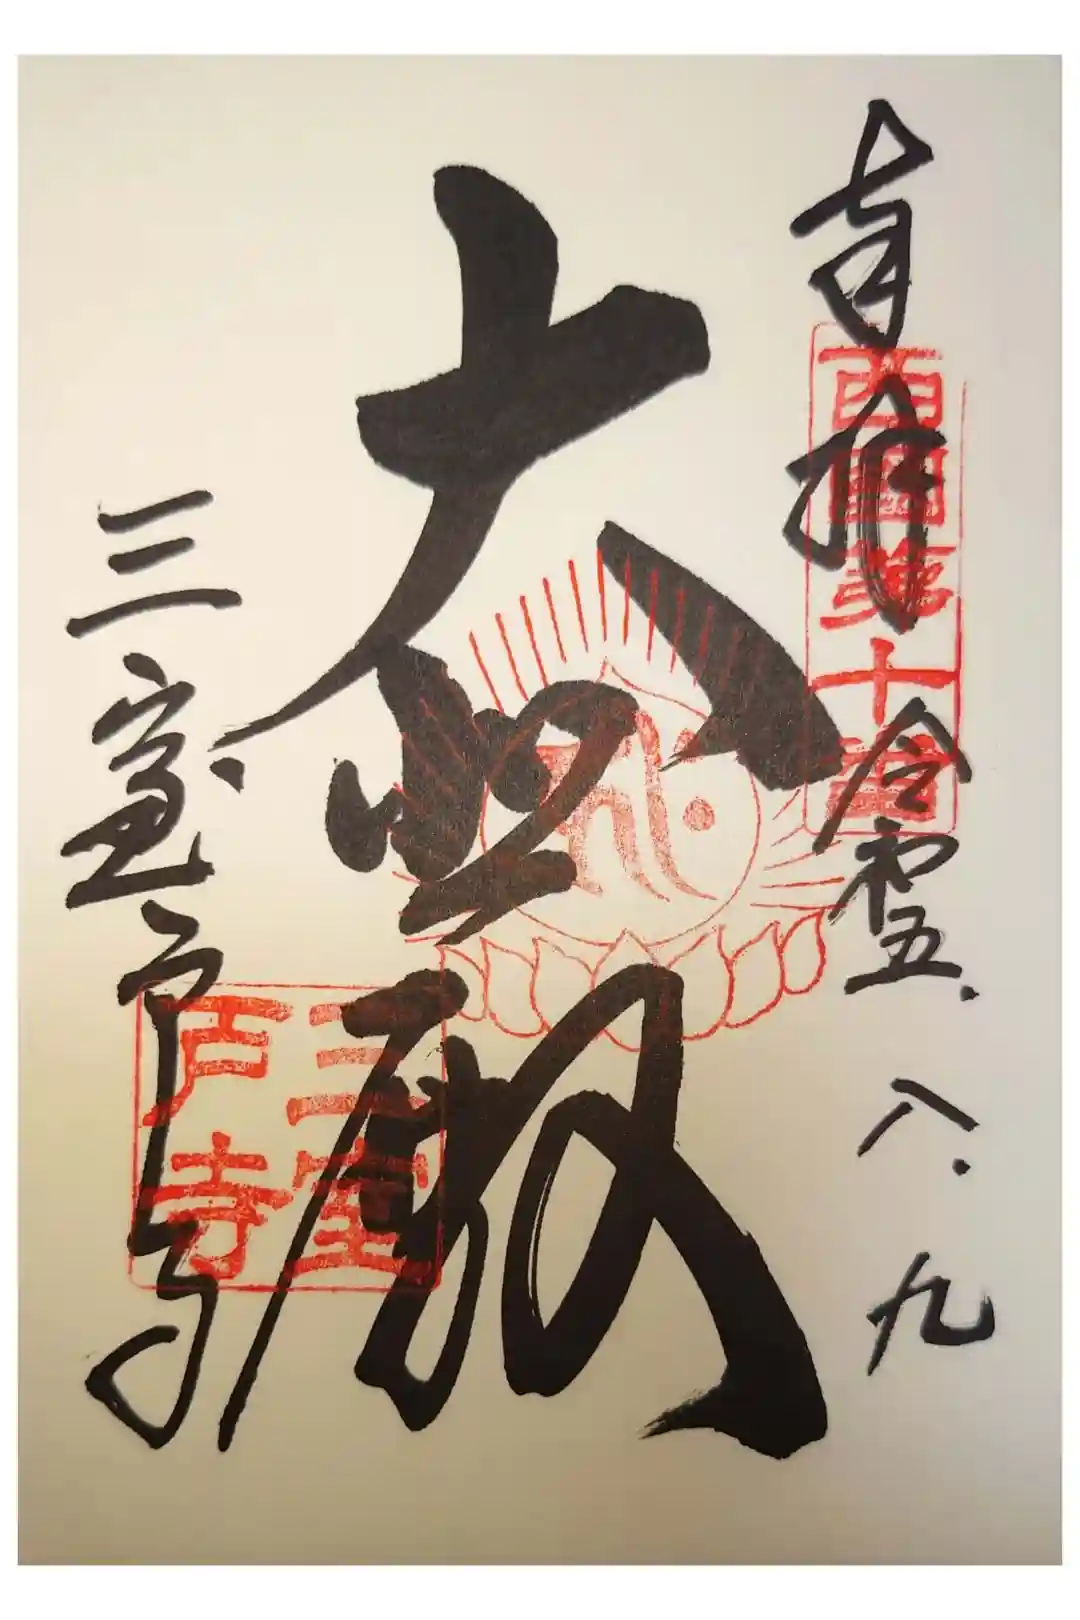 奉拝
令和五.八.九
西國第十番
大悲殿
三室戸寺
三室戸寺